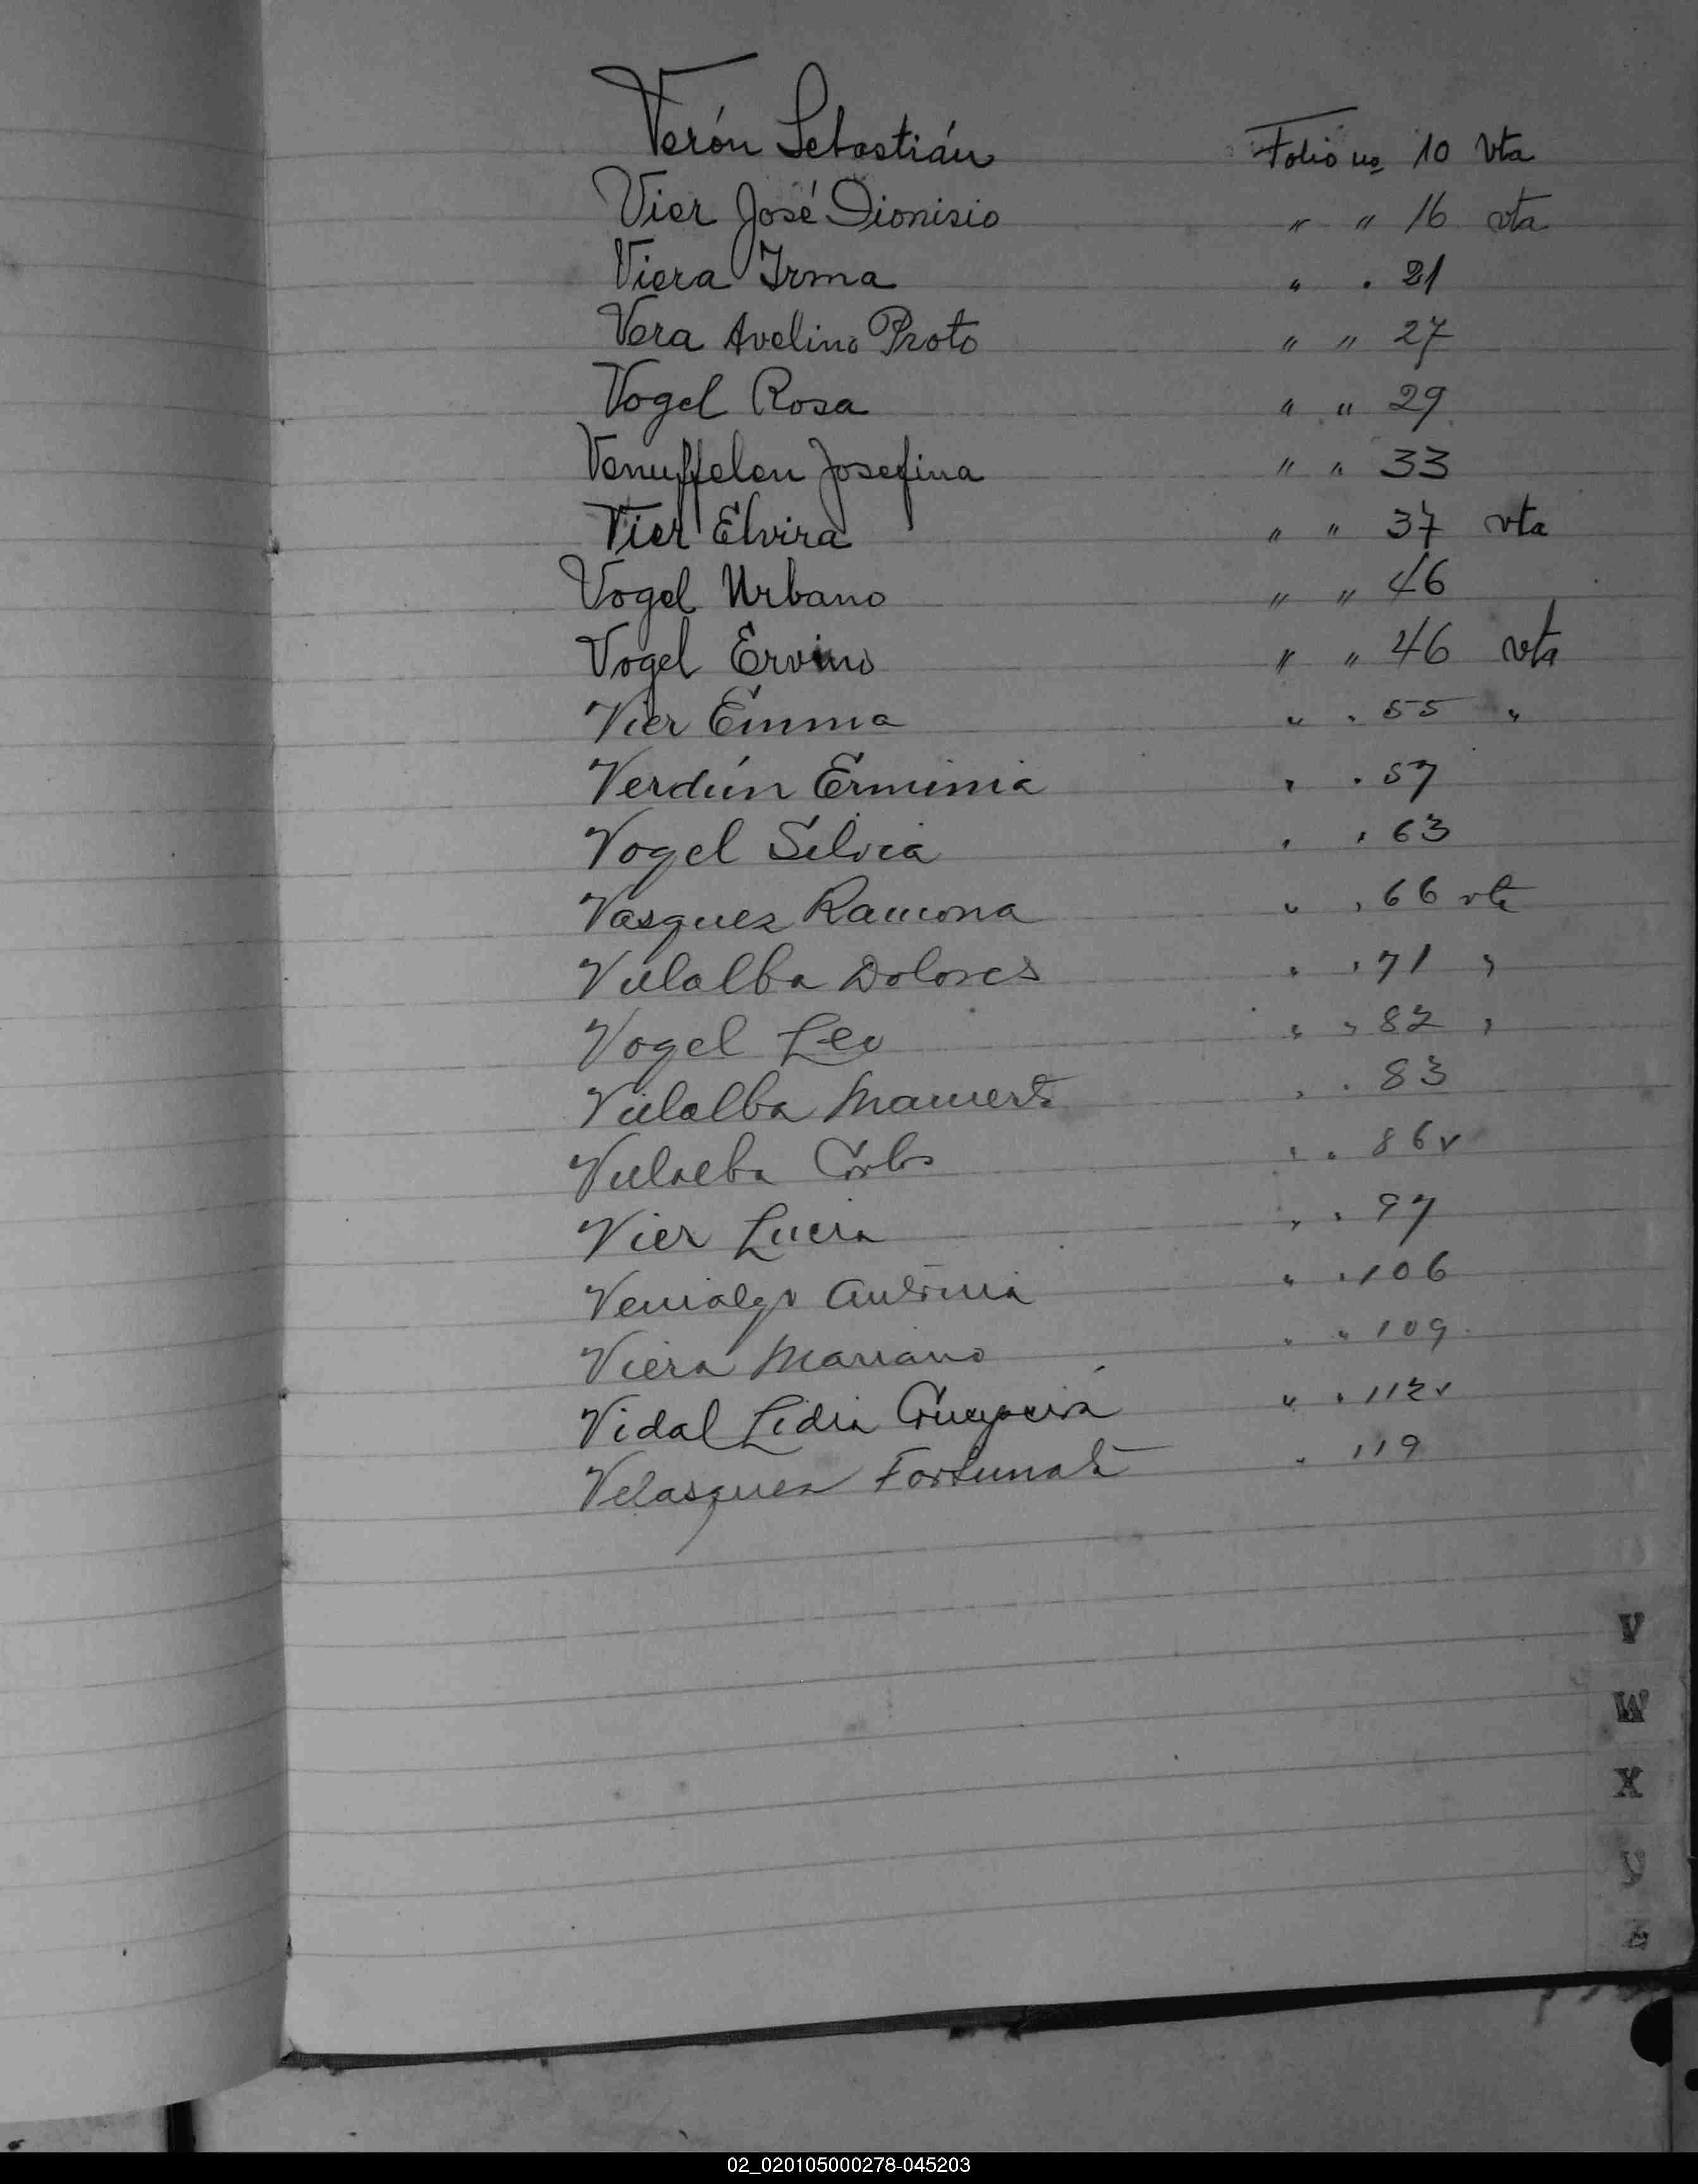 Verón Sebastián Folio no 10 vta
Vier José Dionisio " " 16 vta
Viera Irma " " 21
Vera Avelino Proto " " 27
Vogel Rosa " " 29
Venuffelen Josefina " " 33
Vier Elvira " " 37 vta
Vogel Urbano " " 46
Vogel Ervino " " 46 vta
Vier Emma " " 55 "
Verdún Erminia " " 57
Vogel Silvia " " 63
Vasquez Ramona " " 66 vta
Vilalba Dolores " " 71 "
Vogel Leo " " 82 "
Vilalba Mamerto " " 83
Vilalba Carlos " " 86 v
Vier Lucia " " 97
Venialgo Antonia " " 106
Viera Mariano " " 109
Vidal Lidia " " 112 v
Velasquez Fortunato " 119
V
W
X
Y
Z
02_020105000278-045203